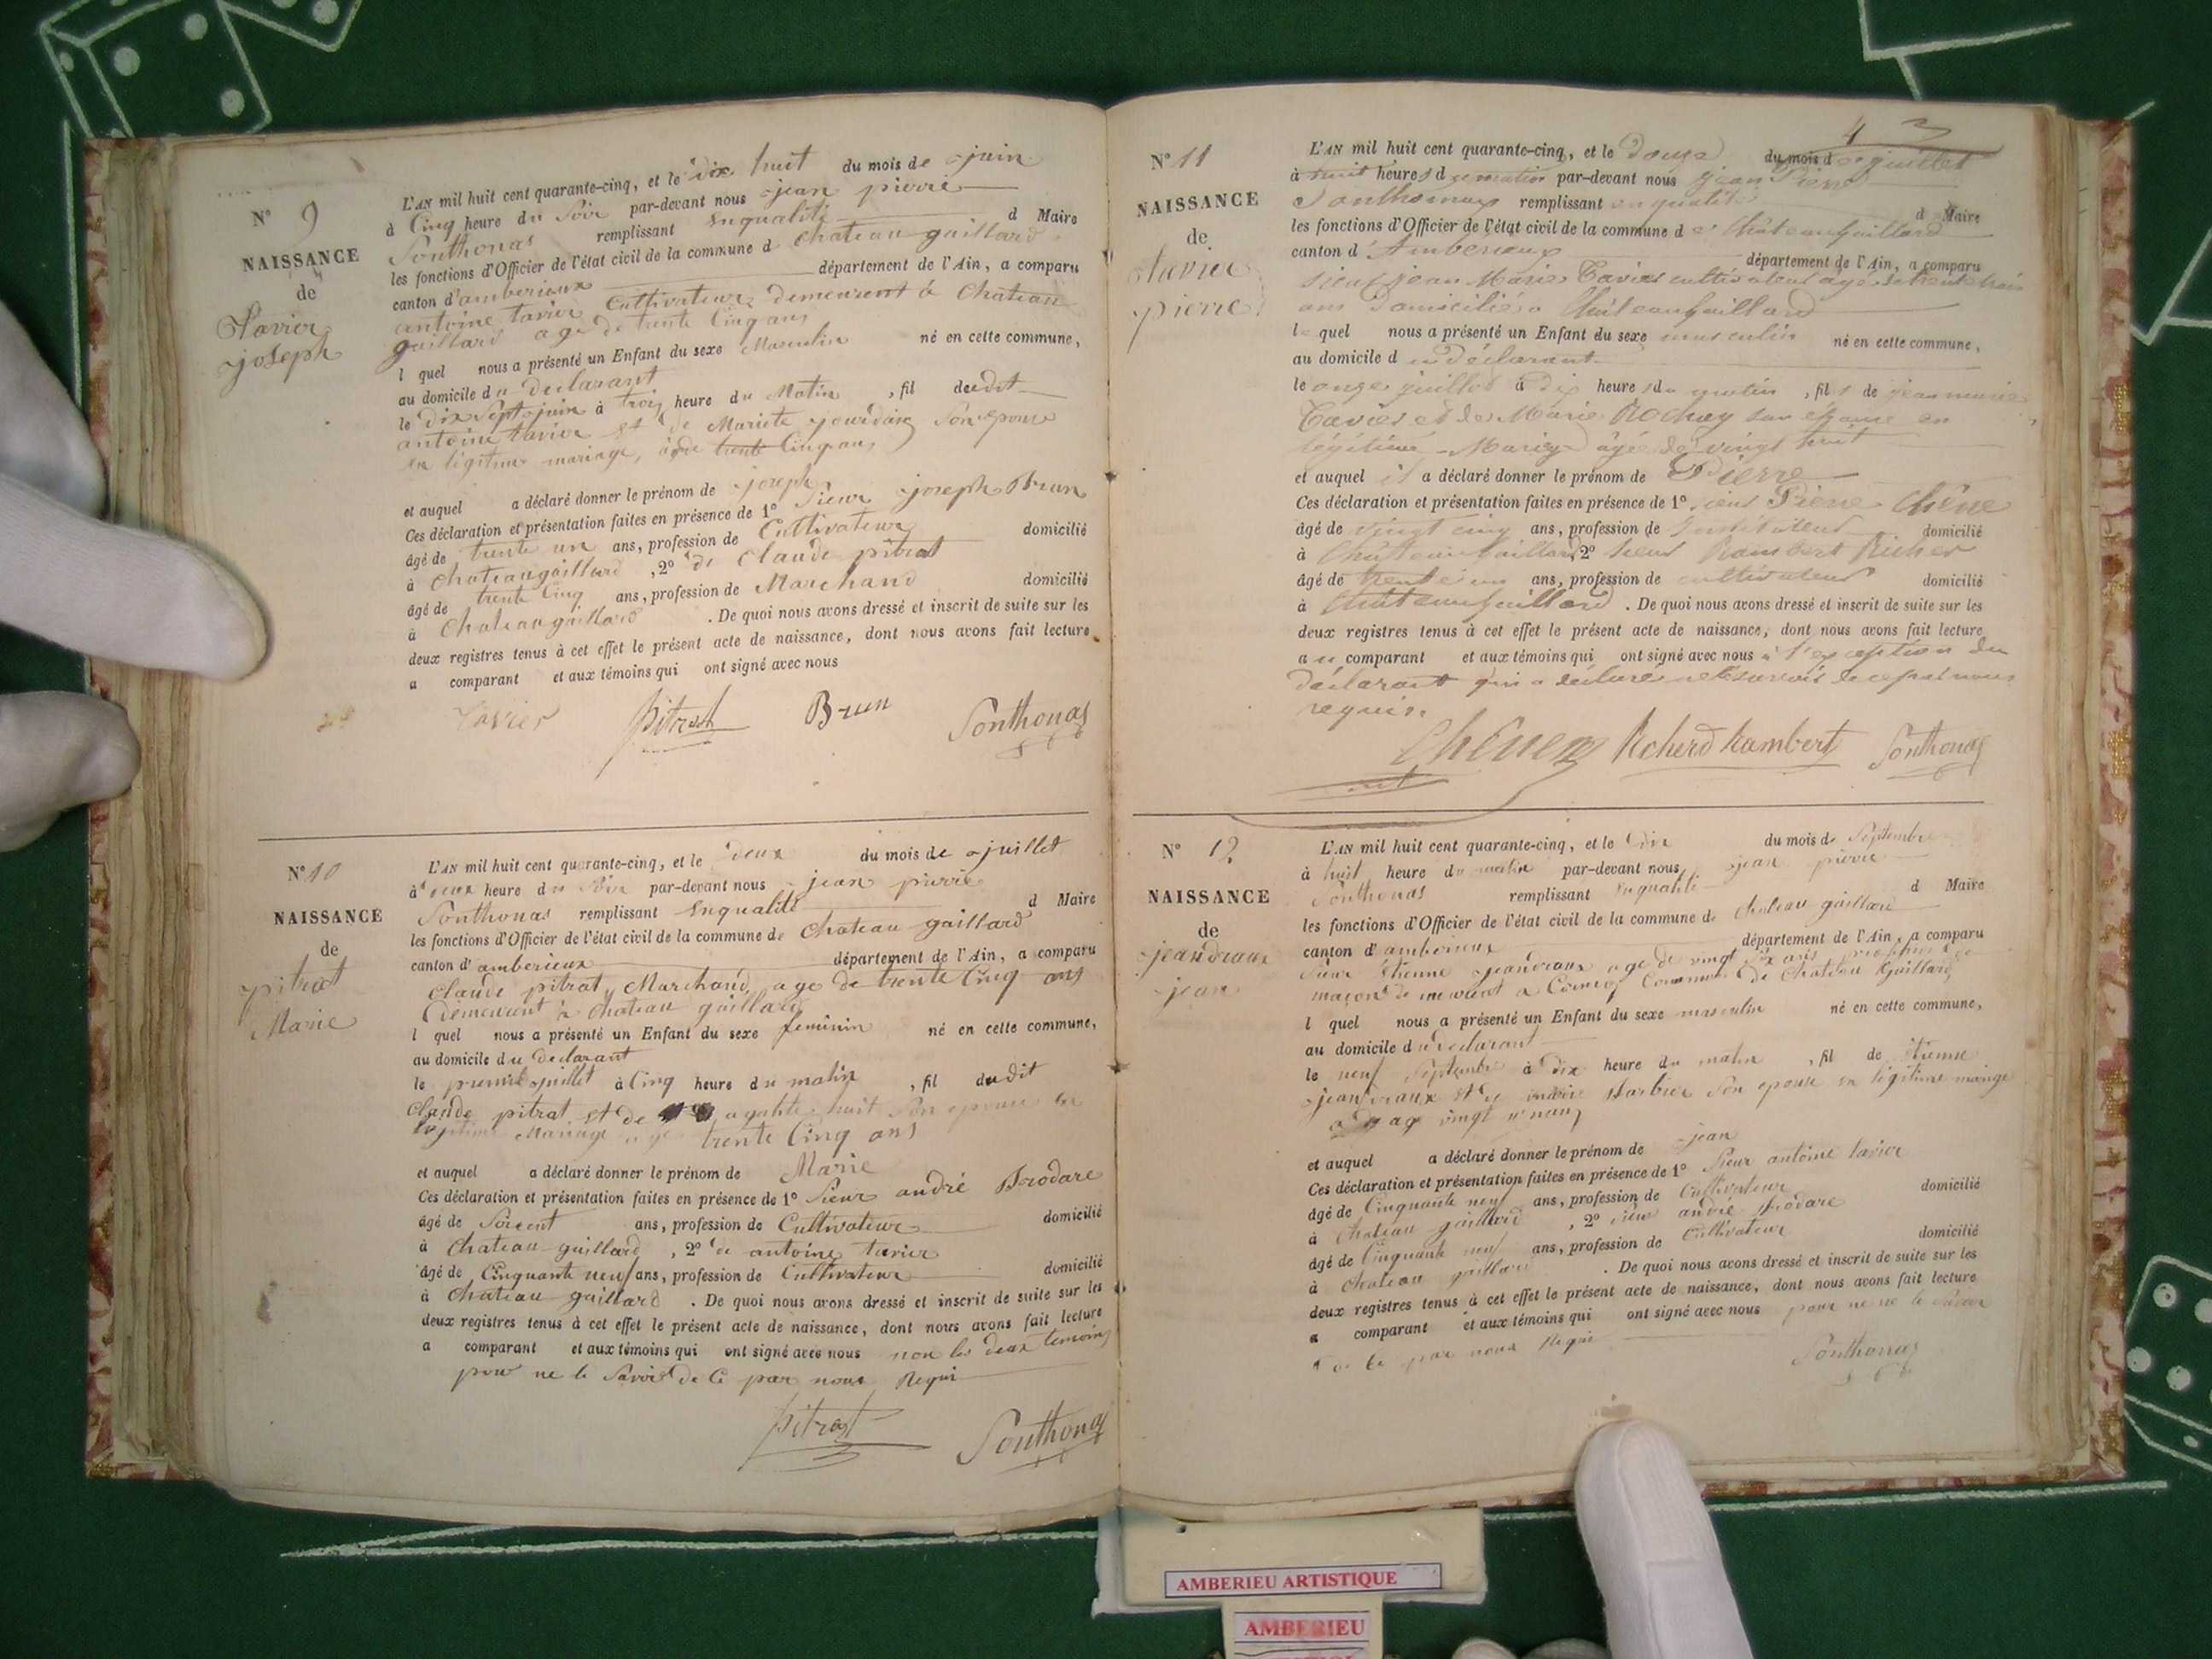 N° 9
NAISSANCE
de
Tavier
joseph
L'AN mil huit cent quarante-cinq, et le dix huit du mois de juin
à Cinq heure du Soir par-devant nous jean pierre
Sonthonas remplissant Enqualité d Maire
les fonctions d'Officier de l'état civil de la commune d chateau gaillard
canton d'amberieux département de l'Ain, a comparu
antoine tavier Cultivateur demeurent à Chateau
gaillard age de trente Cinq ans
l quel nous a présenté un Enfant du sexe Masculin né en cette commune,
au domicile du declarant
le dix Sept juin à trois heure du Matin , fil dudit
antoine tavier et de Mariete jourdain Son epouse
en légitime mariage, trente Cinq ans
et auquel a déclaré donner le prénom de joseph
Ces déclaration et présentation faites en présence de 1° Sieur joseph Brun
âgé de trente un ans, profession de Cultivateur domicilié
à chateaugaillard , 2° de Claude pitrat
âgé de trente Cinq ans, profession de Marchand domicilié
à Chateaugaillard . De quoi nous avons dressé et inscrit de suite sur les
deux registres tenus à cet effet le présent acte de naissance, dont nous avons fait lecture
a comparant et aux témoins qui ont signé avec nous
Tavier pitrat Brun Sonthonas
N° 10
NAISSANCE
de
pitrat
Marie
L'AN mil huit cent quarante-cinq, et le deux du mois de juillet
à deux heure du Soir par-devant nous jean pierre
Sonthonas remplissant Enqualité d Maire
les fonctions d'Officier de l'état civil de la commune de Chateau gaillard
canton d'amberieux département de l'Ain, a comparu
Claude pitrat Marchand, age de trente Cinq ans
demeurant à chateau gaillard
l quel nous a présenté un Enfant du sexe feminin né en cette commune,
au domicile du declarant
le premié juillet à Cinq heure du matin , fil dudit
Claude pitrat et de agathe huit Son epouse en
legitime Mariage age trente Cinq ans
et auquel a déclaré donner le prénom de Marie
Ces déclaration et présentation faites en présence de 1° Sieur andré Brodare
âgé de Soixent ans, profession de Cultivateur domicilié
à Chateau gaillard , 2° de antoine tavier
âgé de Cinquante neuf ans, profession de Cultivateur domicilié
à Chateau gaillard . De quoi nous avons dressé et inscrit de suite sur les
deux registres tenus à cet effet le présent acte de naissance, dont nous avons fait lecture
a comparant et aux témoins qui ont signé avec nous non les deux temoins
pour ne le Savoir de Ce par nous Requi
pitrat Sonthonas
N° 11
NAISSANCE
de
Tavier
pierre
L'AN mil huit cent quarante-cinq, et le douze du mois de juillet
à huit heures du matin par-devant nous Jean Pierre
Sonthonax remplissant en qualité d Maire
les fonctions d'Officier de l'état civil de la commune de Châteaugaillard
canton d'Amberieux département de l'Ain, a comparu
sieur jean Marie Tavier cultivateur agé de trente trois
ans domicilié à Châteaugaillard
le quel nous a présenté un Enfant du sexe masculin né en cette commune,
au domicile du déclarant
le onze juillet à dix heures du matin , fils de jean marie
Tavier et de Marie Rochay son épouse en
légitime Mariage âgée de vingt huit
et auquel il a déclaré donner le prénom de Pierre
Ces déclaration et présentation faites en présence de 1° sieur Pierre Chêne
âgé de vingt cinq ans, profession de instituteur domicilié
à Châteaugaillard, 2° sieur Rambert Richer
âgé de trente un ans, profession de cultivateur domicilié
à Châteaugaillard . De quoi nous avons dressé et inscrit de suite sur les
deux registres tenus à cet effet le présent acte de naissance, dont nous avons fait lecture
au comparant et aux témoins qui ont signé avec nous à l'exception du
déclarant qui a déclaré ne le savoir de ce par nous
requis.
Richerd Rambert Sonthonas
N° 12
NAISSANCE
de
jeandraux
jean
L'AN mil huit cent quarante-cinq, et le dix du mois de Septembre
à huit heure du matin par-devant nous jean pierre
Sonthonas remplissant Enqualité d Maire
les fonctions d'Officier de l'état civil de la commune de Chateau gaillard
canton d'amberieux département de l'Ain, a comparu
Sieur Étienne jeandraux age de vingt Six ans profession de
maçon demeurant a Commune de Chateau Gaillard
l quel nous a présenté un Enfant du sexe masculin né en cette commune,
au domicile du declarant
le neuf Septembre à Dix heure du matin , fil de Étienne
jeandraux et marie Barbier Son epouse en légitime mariage
age vingt
et auquel a déclaré donner le prénom de jean
Ces déclaration et présentation faites en présence de 1° Sieur antoine tavier
âgé de Cinquante neuf ans, profession de Cultivateur domicilié
à Chateau gaillard , 2° Sieur andré Brodare
âgé de Cinquante neuf ans, profession de Cultivateur domicilié
à Chateau gaillard . De quoi nous avons dressé et inscrit de suite sur les
deux registres tenus à cet effet le présent acte de naissance, dont nous avons fait lecture
a comparant et aux témoins qui ont signé avec nous pour ne le Savoir
de Ce par nous Requi
Sonthonas
AMBERIEU ARTISTIQUE
AMBERIEU